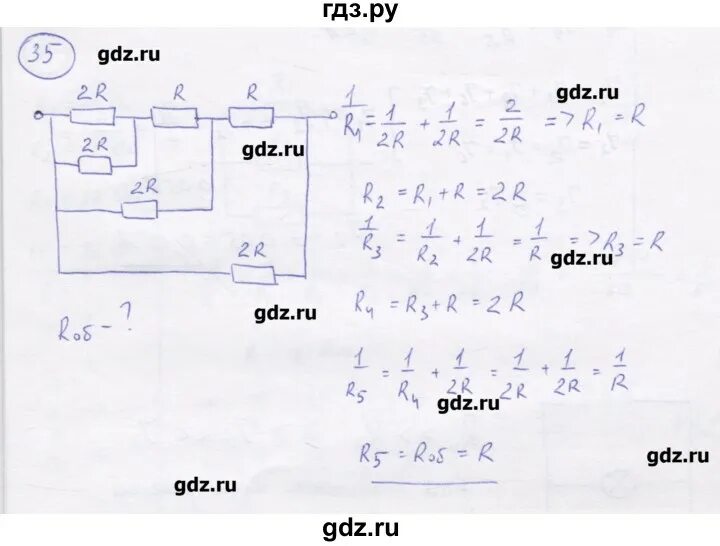 гдз.ру
35
gdz.ru
2R R R
2R
2R
2R
gdz.ru
gdz.ru
Rоб - ?
gdz.ru
1/R1 = 1/2R + 1/2R = 2/2R => R1 = R
gdz.ru
R2 = R1 + R = 2R
1/R3 = 1/R2 + 1/2R = 1/R => R3 = R
gdz.ru
R4 = R3 + R = 2R
1/R5 = 1/R4 + 1/2R = 1/2R + 1/2R = 1/R
gdz.ru
R5 = Rоб = R
gdz.ru
gdz.ru